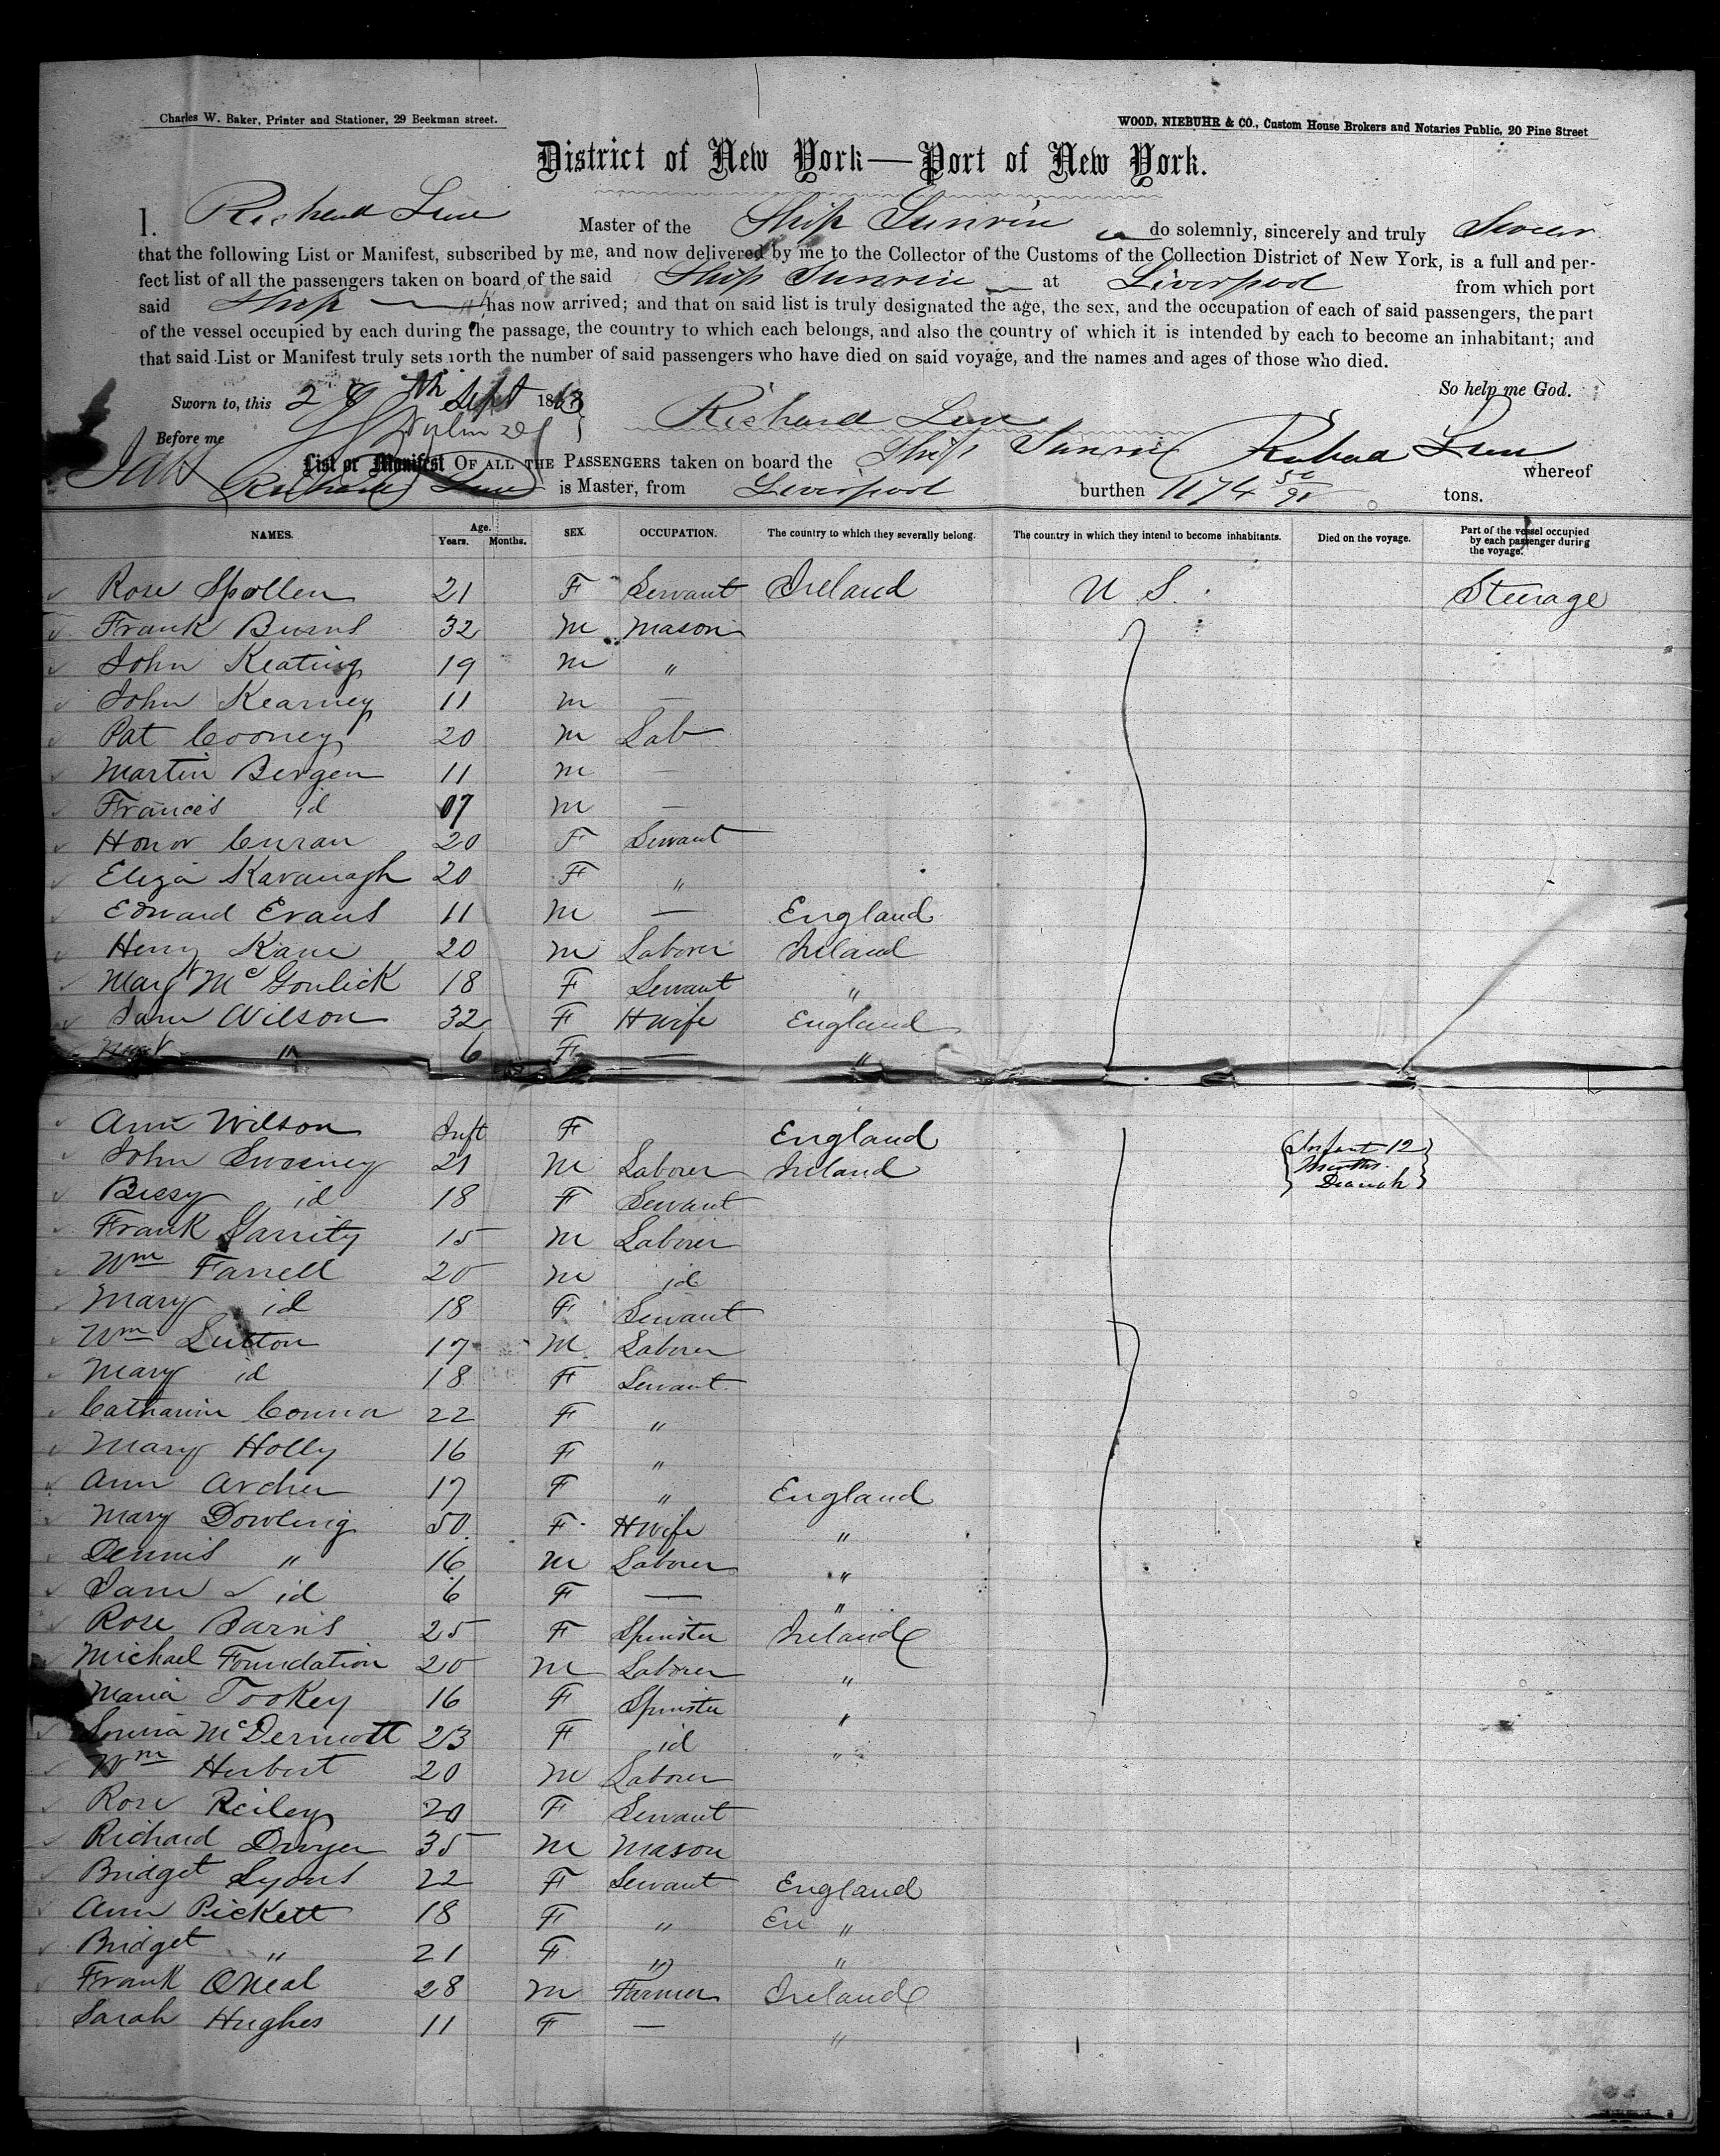 Charles W. Baker, Printer and Stationer, 29 Beekman street.
WOOD, NIEBUHR & CO., Custom House Brokers and Notaries Public, 20 Pine Street
District of New York—Port of New York.
I. Richard Master of the Ship do solemnly, sincerely and truly Swear
that the following List or Manifest, subscribed by me, and now delivered by me to the Collector of the Customs of the Collection District of New York, is a full and per-
fect list of all the passengers taken on board of the said Ship at Liverpool from which port
said Ship has now arrived; and that on said list is truly designated the age, the sex, and the occupation of each of said passengers, the part
of the vessel occupied by each during the passage, the country to which each belongs, and also the country of which it is intended by each to become an inhabitant; and
that said List or Manifest truly sets forth the number of said passengers who have died on said voyage, and the names and ages of those who died.
So help me God.
Sworn to, this 28th Sept 1863
Richard
Before me
List or Manifest OF ALL THE PASSENGERS taken on board the Ship whereof
Richard is Master, from Liverpool burthen 1174 tons.
NAMES. Age. Years. Months. SEX. OCCUPATION. The country to which they severally belong. The country in which they intend to become inhabitants. Died on the voyage. Part of the vessel occupied by each passenger during the voyage.
Rose Spollen 21 F Servant Ireland U S. Steerage
Frank Burns 32 M Mason
John Keating 19 M "
John Kearney 11 M —
Pat Cooney 20 M Lab
Martin Bergen 11 M —
Frances id 07 M —
Honor Curan 20 F Servant
Eliza Kavanagh 20 F "
Edward Evans 11 M — England
Henry Kane 20 M Laborer Ireland
Margt McGoulick 18 F Servant "
Jane Wilson 32 F H Wife England
" 6 F — "
Ann Wilson Inft F England Infant 12 Months
John Sweeney 21 M Laborer Ireland
Bessy id 18 F Servant
Frank Garrity 15 M Laborer
Wm Farrell 20 M id
Mary id 18 F Servant
Wm Sutton 17 M. Laborer
Mary id 18 F Servant
Catharine Conna 22 F "
Mary Holly 16 F "
Ann Archer 17 F " England
Mary Dowling 50 F H Wife "
Dennis " 16 M Laborer "
Jane id 6 F — "
Rose Barns 25 F Spinster Ireland
Michael Foundation 20 M Laborer "
Maria Tookey 16 F Spinster "
McDermott 23 F id "
Wm Herbert 20 M Laborer
Rose Reiley 20 F Servant
Richard Dwyer 35 M Mason
Bridget Lyons 22 F Servant England
Ann Pickett 18 F " En "
Bridget " 21 F " "
Frank ONeal 28 M Farmer Ireland
Sarah Hughes 11 F — "